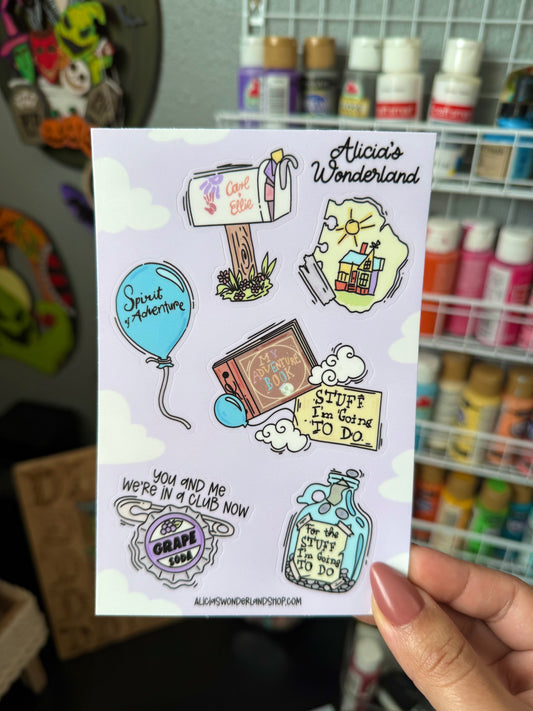 Alicia's
Wonderland
Carl
&
Ellie
Spirit
of Adventure
MY
ADVENTURE
BOOK
STUFF
I'm Going
TO DO
YOU AND ME
WE'RE IN A CLUB NOW
GRAPE
SODA
For the
STUFF
I'm Going
TO DO
ALICIASWONDERLANDSHOP.COM